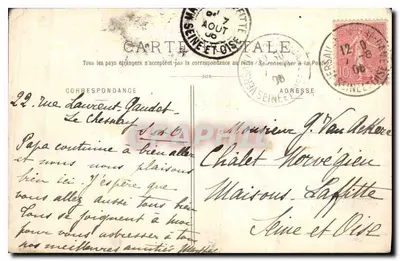 CARTE POSTALE
Tous les pays étrangers n'acceptent pas la correspondance au recto. Se renseigner à la Poste
CORRESPONDANCE
22, rue Laurent Gaudet
Le Chesnay
S. et O.
Papa continue à bien aller
et nous nous plaisons
bien ici. J'espère que
vous allez aussi tous bien
Tous se joignent à moi
pour vous adresser à tous
nos meilleures amitiés
ADRESSE
Monsieur G. Van Ackere
Chalet Norvégien
Maisons-Laffitte
Seine et Oise
SEINE ET OISE
7
AOUT
06